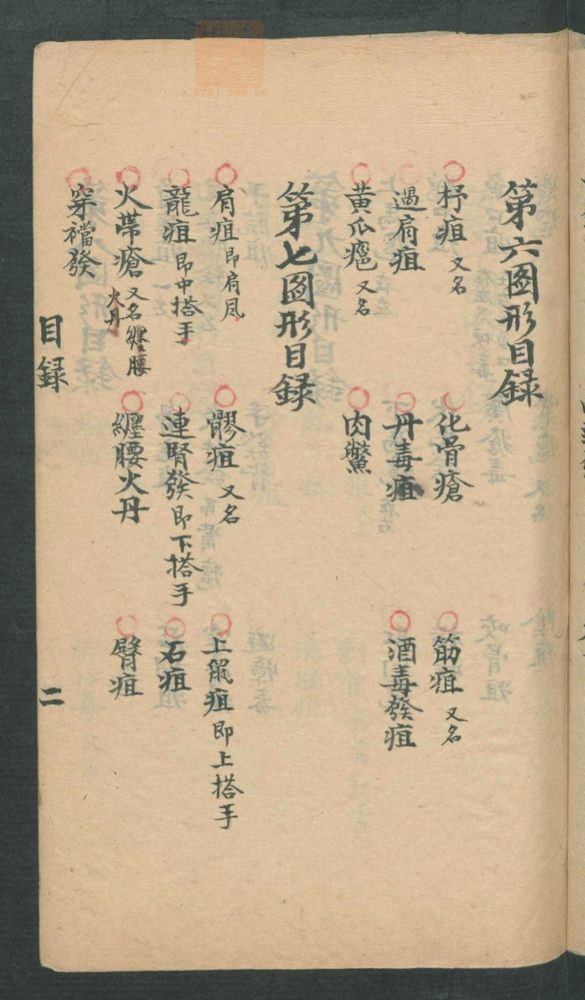 第六圖形目録
杼疽 又名 化骨瘡 筋疽 又名
過肩疽 丹毒疽 酒毒發疽
黄瓜癰 又名 肉鱉
第七圖形目録
肩疽 即肩風 髎疽 又名 上鼠疽 即上搭手
龍疽 即中搭手 連腎發 即下搭手 石疽
火帶瘡 又名纏腰火丹 纏腰火丹 臀疽
穿襠發
目録 二